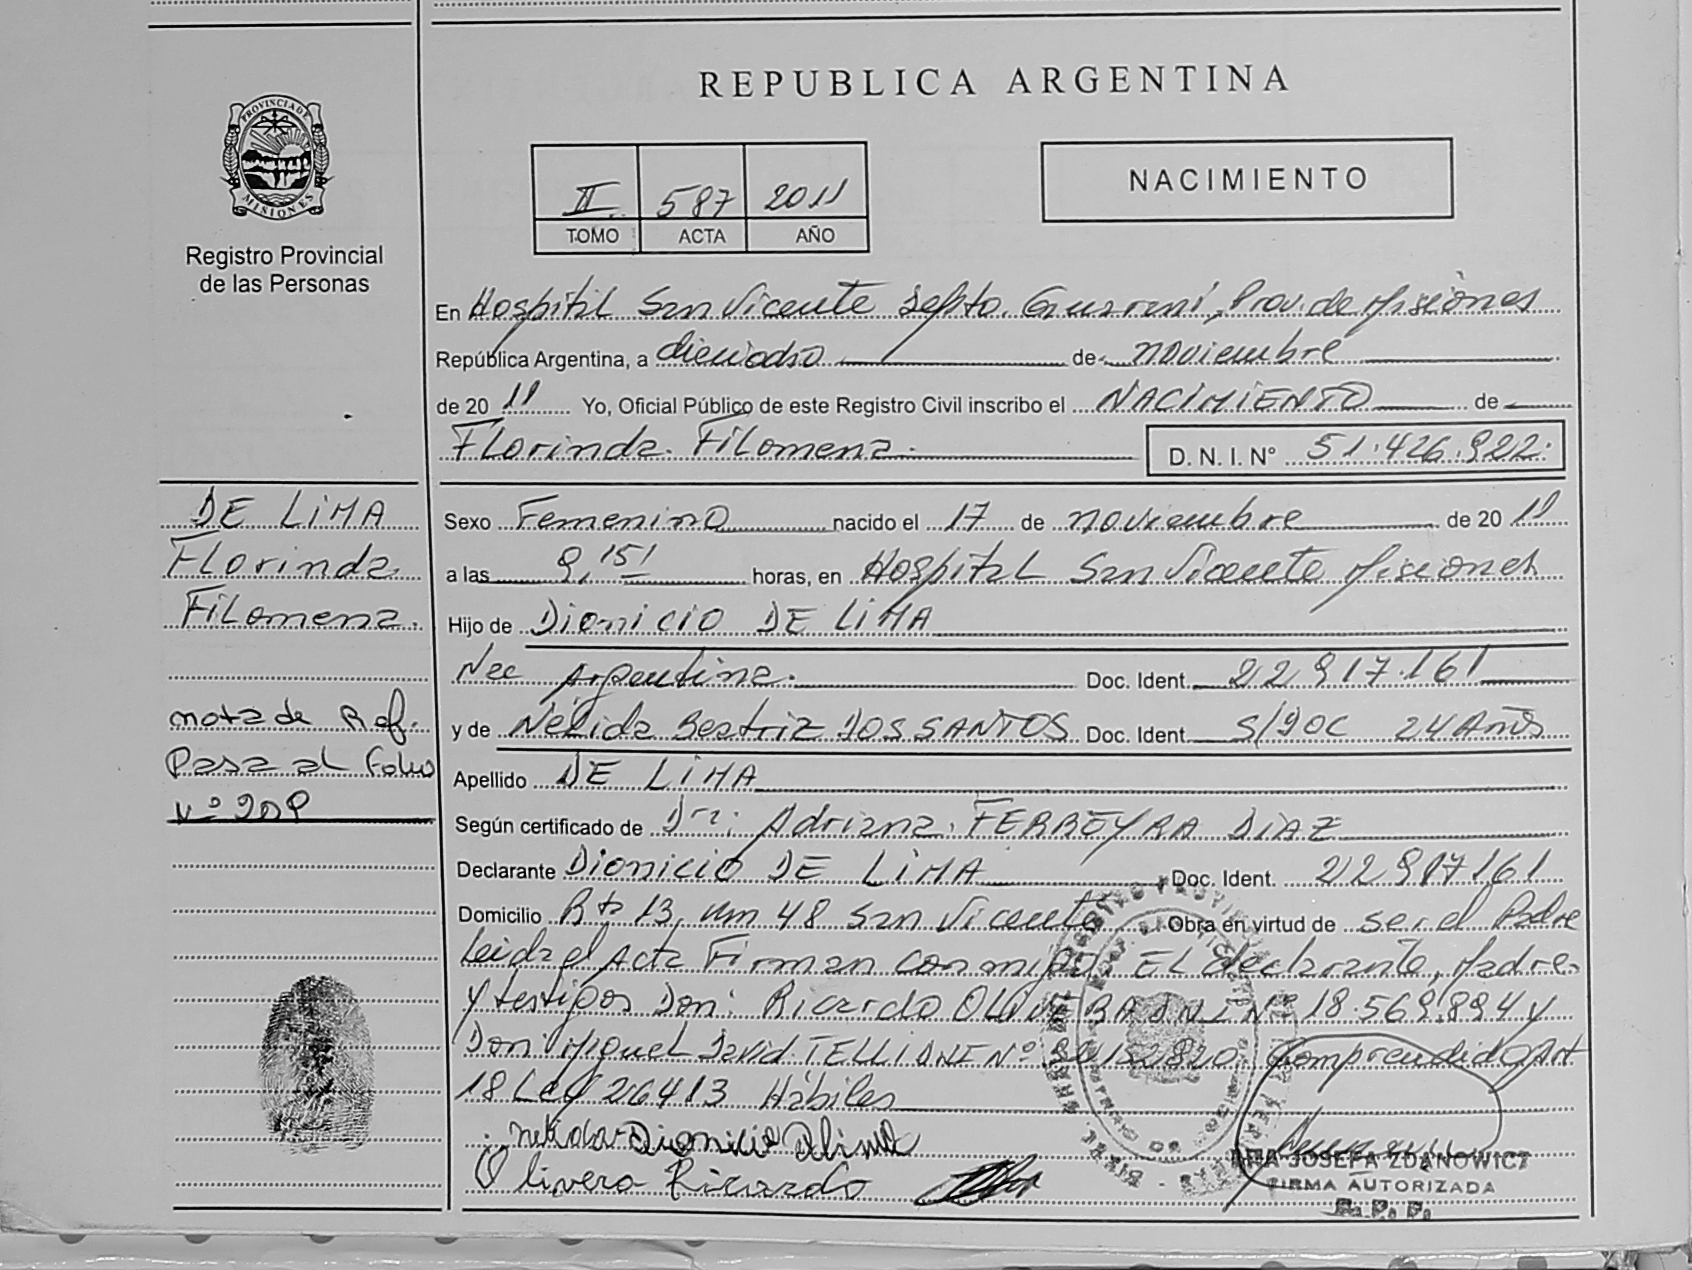 REPUBLICA ARGENTINA
PROVINCIA DE MISIONES
Registro Provincial
de las Personas
II 587 2011
TOMO ACTA AÑO
NACIMIENTO
En Hospital San Vicente Depto. Guaraní, Prov. de Misiones
República Argentina, a dieciocho de noviembre
de 2011 Yo, Oficial Público de este Registro Civil inscribo el NACIMIENTO de
Florinda Filomena D. N. I. N° 51.426.922
DE LIMA
Florinda
Filomena
nota de Ref.
Pasa al Folio
N° 209
Sexo Femenino nacido el 17 de noviembre de 2011
a las 9,15 horas, en Hospital San Vicente Misiones
Hijo de Dionicio DE LIMA
Nac Argentina Doc. Ident. 22.917.161
y de Nélida Beatriz DOS SANTOS Doc. Ident. S/DOC 24 Años
Apellido DE LIMA
Según certificado de Dra: Adriana FERREYRA DIAZ
Declarante Dionicio DE LIMA Doc. Ident. 22917161
Domicilio Rta 13, Km 48 San Vicente Obra en virtud de ser el Padre
Leida el Acta Firman conmigo El declarante, Madre
y testigos Don: Ricardo OLIVERA DNI N° 18.569.894 y
Don Miguel David TELLI DNI N° Comprendido Art
18 Ley 26413 Hábiles
nelida Dionicio
Olivera Ricardo
JOSEFA ZDANOWICZ
FIRMA AUTORIZADA